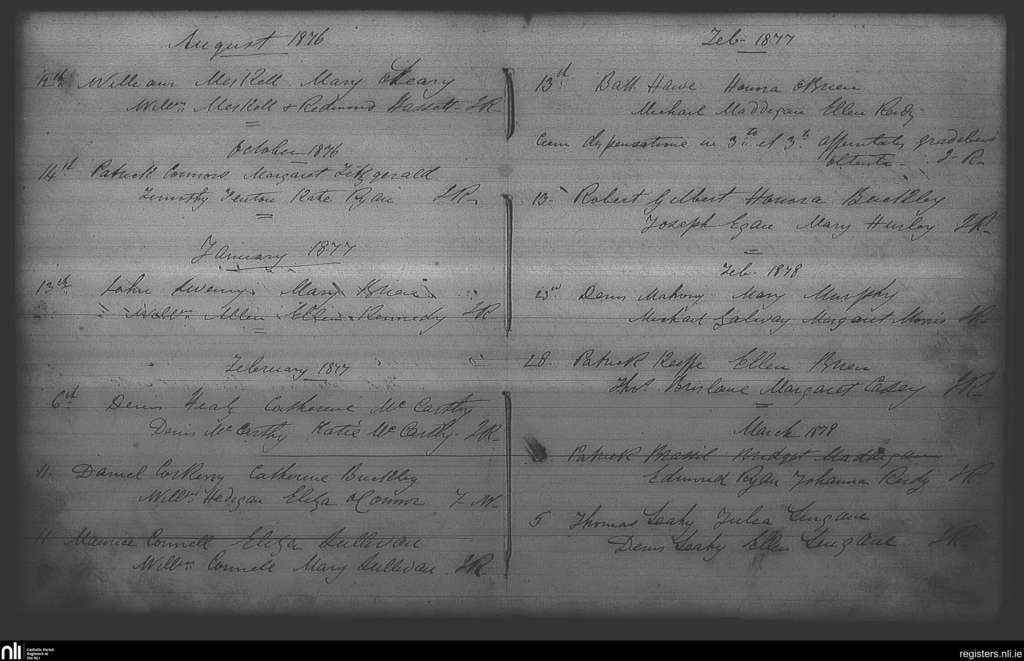 August 1876
14th William Meskell Mary O'Leary
Willm Meskell & Redmond Hassett JR
October 1876
14th Patrick Connors Margaret Fitzgerald
Timothy Fenton Kate Ryan JR
January 1877
13th John Sweeny Mary Brien
Willm Allen Ellen Kennedy JR
February 1877
6th Denis Healy Catherine McCarthy
Denis McCarthy Katie McCarthy JR
11 Daniel Corkery Catherine Buckley
Willm Hedigan Eliza O'Connor
11 Maurice Connell Eliza Sullivan
Willm Connell Mary Sullivan JR
Feb 1877
13th Batt Hawe Honora O'Brien
Michael Maddigan Ellen Reidy
Cum dispensatione in 3to et 3to affinitatis gradibus
obtenta JR
13 Robert Gilbert Honora Buckley
Joseph Egan Mary Hurley JR
Feb. 1878
Denis Mahony Mary Murphy
Michael Galway Margaret Morris JR
28 Patrick Keeffe Ellen Brien
Thos Brislane Margaret Casey JR
March 1878
Patrick Brassil Bridget Maddigan
Edmond Ryan Johanna Reidy JR
5 Thomas Leahy Julia Lingane
Denis Leahy Ellen Lingane JR
nli
Catholic Parish
Registers at
the NLI
registers.nli.ie